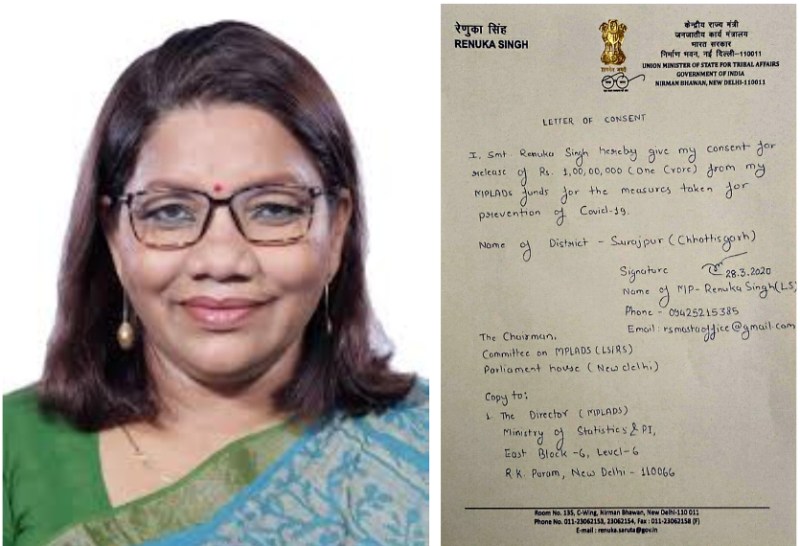 रेणुका सिंह
RENUKA SINGH
केन्द्रीय राज्य मंत्री
जनजातीय कार्य मंत्रालय
भारत सरकार
निर्माण भवन, नई दिल्ली-110011
UNION MINISTER OF STATE FOR TRIBAL AFFAIRS
GOVERNMENT OF INDIA
NIRMAN BHAWAN, NEW DELHI-110011
LETTER OF CONSENT
I. Smt Renuka Singh hereby give my consent for
release of Rs. 1,00,00,000 (One Crore) from my
MPLADS funds for the measures taken for
prevention of Covid-19.
Name of District - Surajpur (Chhattisgarh)
Signature 28.3.2020
Name of MP- Renuka Singh(LS)
Phone - 09425215385
Email: rsmostaoffice@gmail.com
The Chairman,
Committee on MPLADS (LS/RS)
Parliament house (New delhi)
Copy to;
1. The Director (MPLADS)
Ministry of Statistics & PI,
East Block -6, Level-6
R.K. Puram, New Delhi - 110066
Room No. 135, C-Wing, Nirman Bhawan, New Delhi-110 011
Phone No. 011-23062153, 23062154, Fax : 011-23062158 (F)
E-mail : renuka.saruta@gov.in